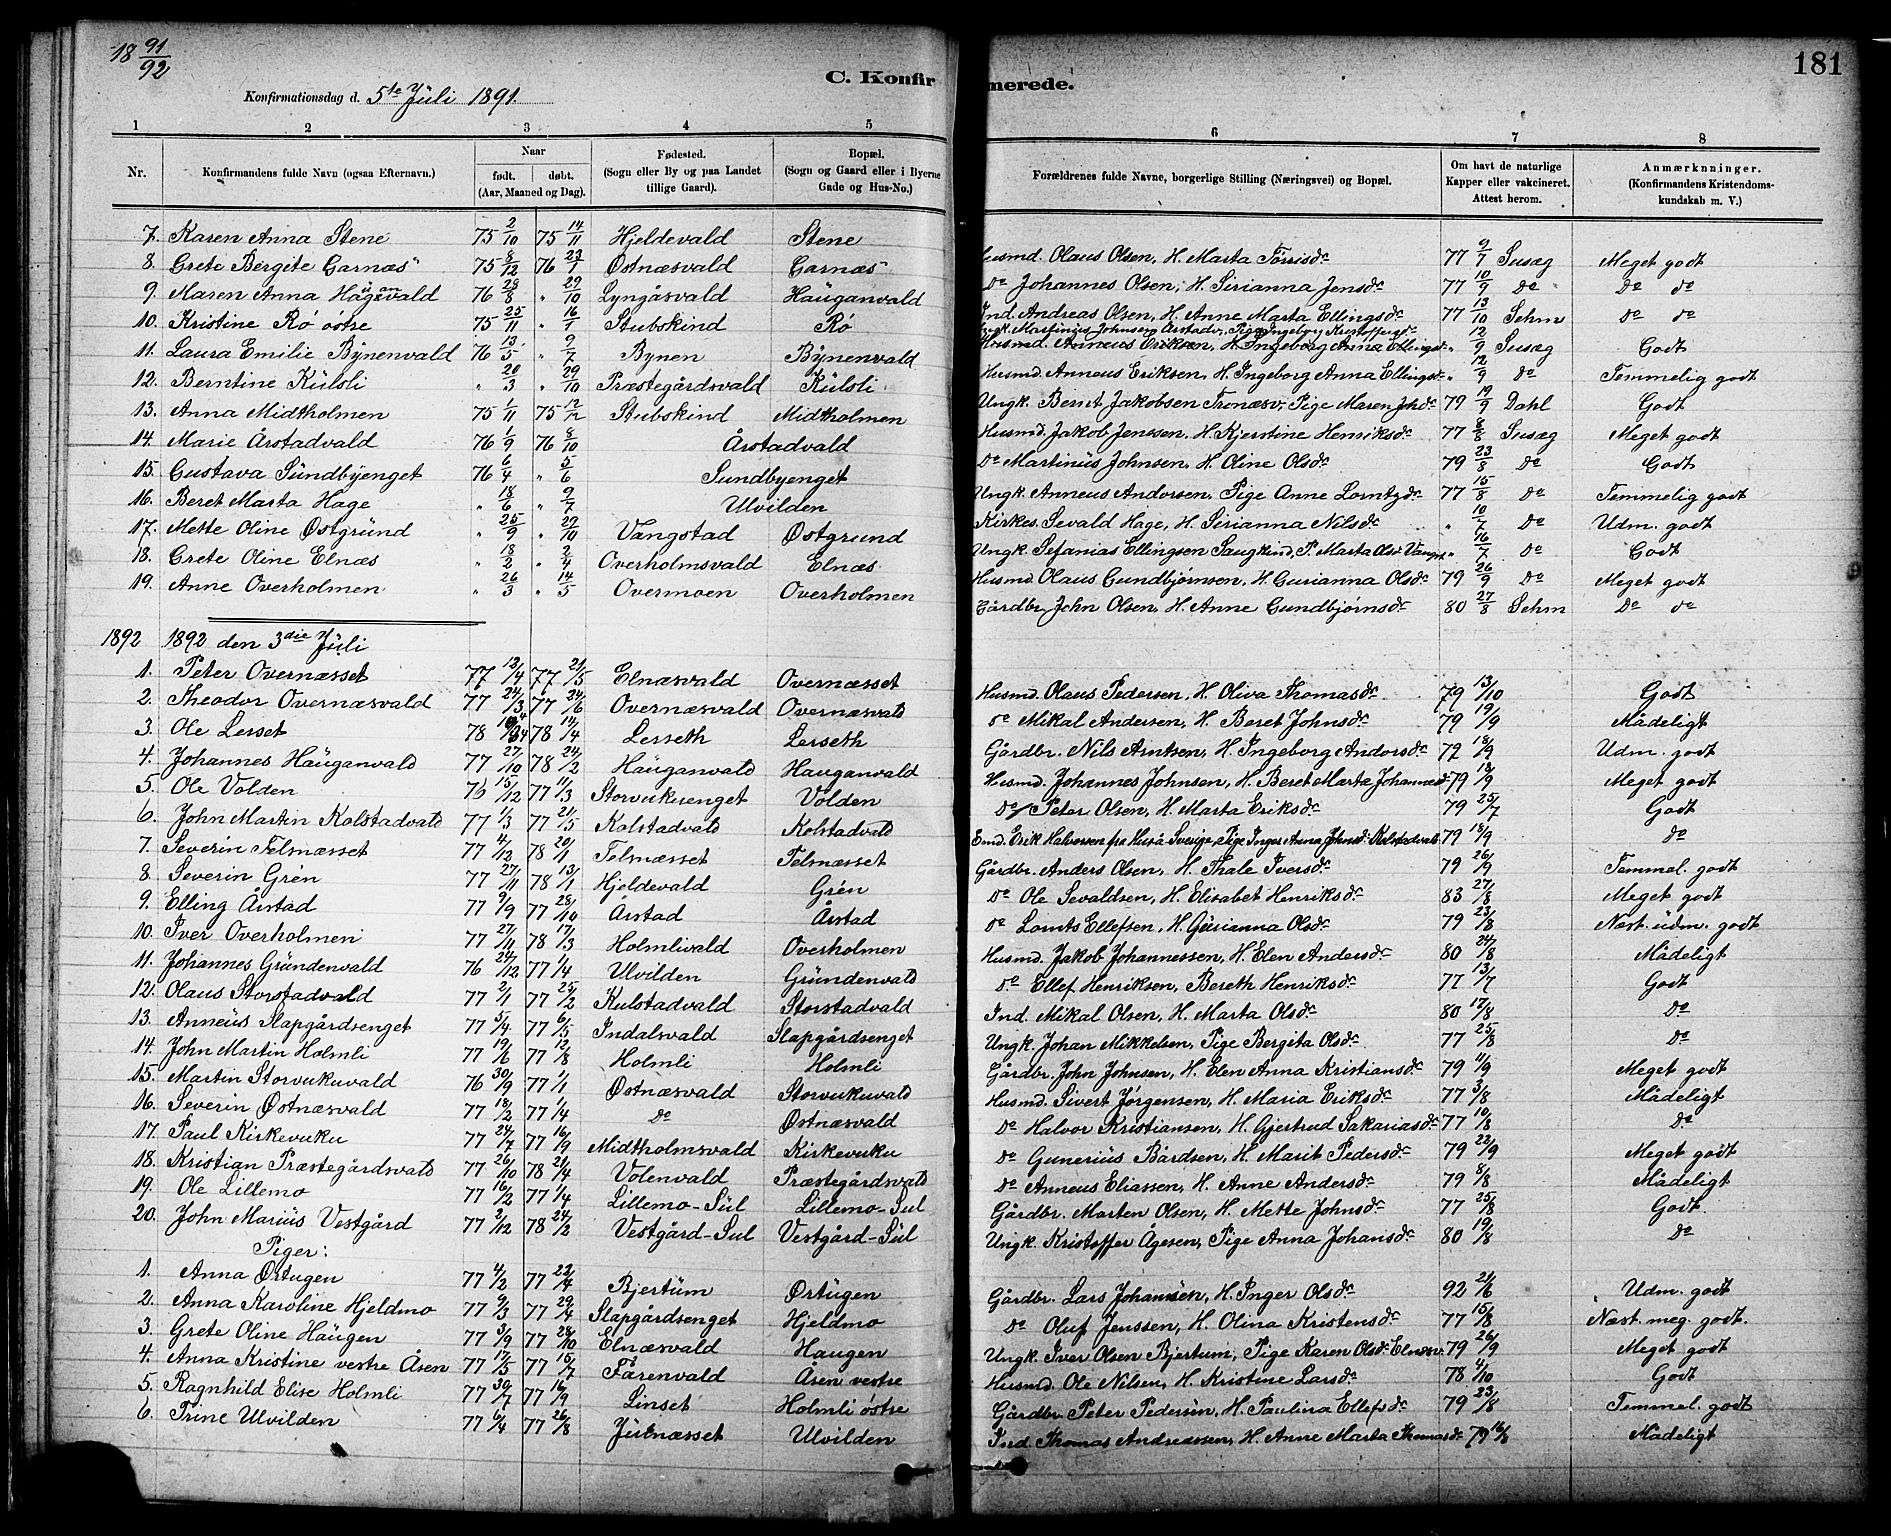 18 91/92
C. Konfir merede. 181
Konfirmationsdag d. 5te Júli 1891.
1 2 3 4 5 6 7 8
Nr. Konfirmandens fulde Navn (ogsaa Efternavn). Naar født. døbt. (Aar, Maaned og Dag). Fødested. (Sogn eller By og paa Landet tillige Gaard). Bopæl. (Sogn og Gaard eller i Byerne Gade og Hus-No.) Forældrenes fulde Navne, borgerlige Stilling (Næringsvei) og Bopæl. Om havt de naturlige Kapper eller vakcineret. Attest herom. Anmærkninger. (Konfirmandens Kristendoms-kundskab m. V.)
7. Karen Anna Stene 75 2/10 75 14/11 Hjeldevald Stene Husmd. Olaus Olsen, H. Marta Torrisdr 77 9/7 Susæg Meget godt
8. Grete Bergite Garnæs 75 8/12 76 23/1 Østnæsvald Garnæs Do Johannes Olsen, H. Sirianna Jensdr 77 10/9 Do Do do
9. Maren Anna Haúganvald 76 28/8 " 29/10 Lyngåsvald Haúganvald Ind. Andreas Olsen, H. Anne Marta Ellingsdr 77 13/10 Sehm Do do
10. Kristine Rø østre 75 25/11 " 16/1 Stubskind Rø Ungk. Martinius Johnsen Årstadv, Pige Ingeborg Kristoffersdr " 12/9 Susæg Godt
11. Laura Emilie Bynenvald 76 13/5 " 9/7 Bynen Bynenvald Husmd. Anneus Eriksen, H. Ingeborg Anna Ellingsdr
12. Berntine Kúlsli " 20/3 " 29/10 Præstegårdsvald Kúlsli Husmd. Anneus Eriksen, H. Ingeborg Anna Ellingsdr " 12/9 Do Temmelig godt
13. Anna Midtholmen 75 1/11 75 12/2 Stubskind Midtholmen Ungk. Bernt Jakobsen Tronæsv, Pige Maren Johdr 79 19/9 Dahl Godt
14. Marie Årstadvald 76 1/9 76 8/10 Årstadvald Husmd. Jakob Jenssen, H. Kjerstine Henriksdr 77 8/8 Susæg Meget godt
15. Gustava Súndbyenget 76 6/4 " 5/6 Sundbyenget Do Martinius Johnsen, H. Oline Olsdr 79 23/8 Do Godt
16. Beret Marta Hage " 18/6 " 9/7 Ulvilden Ungk. Anneus Andorsen, Pige Anne Lorntzdr 77 15/8 Do Temmelig godt
17. Mette Oline Østgrúnd " 25/9 " 29/10 Vangstad Østgrund Kirkes. Sevald Hage, H. Sirianna Nilsdr " 10/7 Do Udm. godt
18. Grete Oline Elnæs " 18/2 " 2/4 Overholmsvald Elnæs Ungk. Sefanias Ellingsen Saugkind, P. Marta Olsdr Vangst " 16/7 Do Godt
19. Anne Overholmen " 26/3 " 14/5 Overmoen Overholmen Husmd. Olaus Gundbjørnsen, H. Gurianna Olsdr 79 26/9 Do Meget godt
Gårdbr. John Olsen, H. Anne Gundbjørnsdr 80 27/8 Sehm Do do
1892 1892 den 3die Júli
1. Peter Overnæsset 77 12/4 77 21/5 Elnæsvald Overnæsset Husmd. Olaus Pedersen, H. Oliva Thomasdr 79 13/10 Godt
2. Theodor Overnæsvald 77 24/3 77 24/6 Overnæsvald Overnæsvald do Mikal Andersen, H. Beret Johnsdr 79 19/9 Mådeligt
3. Ole Lerset 78 78 14/4 Lerseth Lerseth Gårdbr. Nils Arntsen, H. Ingeborg Andorsdr 79 18/9 Udm. godt
4. Johannes Haúganvald 77 27/10 78 24/2 Haúganvald Hauganvald Husmd. Johannes Johnsen, H. Beret Marta Johannesdr 79 18/9 Meget godt
5. Ole Volden 76 15/12 77 11/3 Storvukuenget Volden do Peter Olsen, H. Marta Eriksdr 79 25/7 Godt
6. John Martin Kolstadvald 77 1/3 77 21/5 Kolstadvald Kolstadvald Emd. Erik Halvorsen fra Huså Sverige, Pige Inger Anna Johnsdr Kolstadvald 79 18/9 do
7. Severin Telnæsset 77 4/12 78 20/1 Telnæsset Telnæsset Gårdbr. Anders Olsen, H. Thale Iversdr 79 26/9 Temmel. godt
8. Severin Grén 77 27/11 78 13/1 Hjeldevald Grén Do Ole Sevaldsen, H. Elisabet Henriksdr 83 27/8 Meget godt
9. Elling Årstad 77 9/9 77 28/10 Årstad Årstad do Lornts Ellefsen, H. Gúrianna Olsdr 79 23/8 Næst. údm. godt
10. Iver Overholmen 77 27/11 78 17/3 Holmlivald Overholmen Husmd. Jakob Johannessen, H. Elen Andersdr 80 24/8 Mådeligt
11. Johannes Grúndenvald 76 24/12 77 1/4 Ulvilden Grúndenvald do Ellef Henriksen, Bereth Henriksdr 77 13/7 Godt
12. Olaus Storstadvald 77 2/1 77 25/2 Kulstadvald Storstadvald Ind. Mikal Olsen, H. Marta Olsdr 80 17/8 Do
13. Anneús Slapgårdsenget 77 5/4 77 6/5 Indalsvald Slapgårdsenget Ungk. Johan Mikkelsen, Pige Bergita Olsdr 77 25/8 Do
14. John Martin Holmli 77 19/6 77 12/8 Holmli Holmli Gårdbr. John Johnsen, H. Elen Anna Kristiansdr 79 11/9 Meget godt
15. Martin Storvukuvald 76 30/9 77 1/1 Østnæsvald Storvukuvald Husmd. Sivert Jørgensen, H. Maria Eriksdr 77 3/8 Mådeligt
16. Severin Østnæsvald 77 18/2 77 1/4 Do Østnæsvald Do Halvor Kristiansen, H. Gjertrud Sakariasdr 77 10/8 Do
17. Paul Kirkevuku 77 24/7 77 16/9 Midtholmsvald Kirkevuku Do Guneriús Bårdsen, H. Marit Pedersdr 79 22/9 Meget godt
18. Kristian Præstegårdsvald 77 26/10 78 21/4 Volenvald Præstegårdsvald Do Anneus Eliassen, H. Anne Andersdr 79 8/8 Mådeligt
19. Ole Lillemo 77 16/2 77 1/4 Lillemo-Súl Lillemo-Sul Gårdbr. Marten Olsen, H. Mette Johnsdr 77 25/8 Godt
20. John Mariús Vestgård 77 2/12 78 24/2 Vestgård-Sul Vestgård-Súl Ungk. Kristoffer Ågesen, Pige Anna Johansdr 80 19/8 Do
Piger:
1. Anna Ørtugen 77 4/2 77 22/4 Bjertúm Ørtúgen Gårdbr. Lars Johansen, H. Inger Olsdr 92 21/6 Udm. godt
2. Anna Karoline Hjeldmo 77 9/3 77 29/4 Slapgårdsenget Hjeldmo Do Oluf Jenssen, H. Olina Kristensdr 77 15/8 Næst. meg. godt.
3. Grete Oline Haúgen 77 3/9 77 28/10 Elnæsvald Haugen Ungk. Iver Olsen Bjertum, Pige Karen Olsdr Elnæsv. 79 26/9 Meget godt
4. Anna Kristine vestre Åsen 77 17/5 77 15/7 Fårenvald Åsen vestre Husmd. Ole Nilsen, H. Kristine Larsdr 78 4/10 Godt
5. Ragnhild Elise Holmli 77 30/7 77 16/9 Linset Holmli østre Gårdbr. Peter Pedersen, H. Paulina Ellefsdr 79 23/8 Temmel. godt
6. Trine Ulvilden 77 6/4 77 26/8 Jútnæsset Ulvilden Ind. Thomas Andreassen, H. Anne Marta Thomasdr 79 16/8 Mådeligt